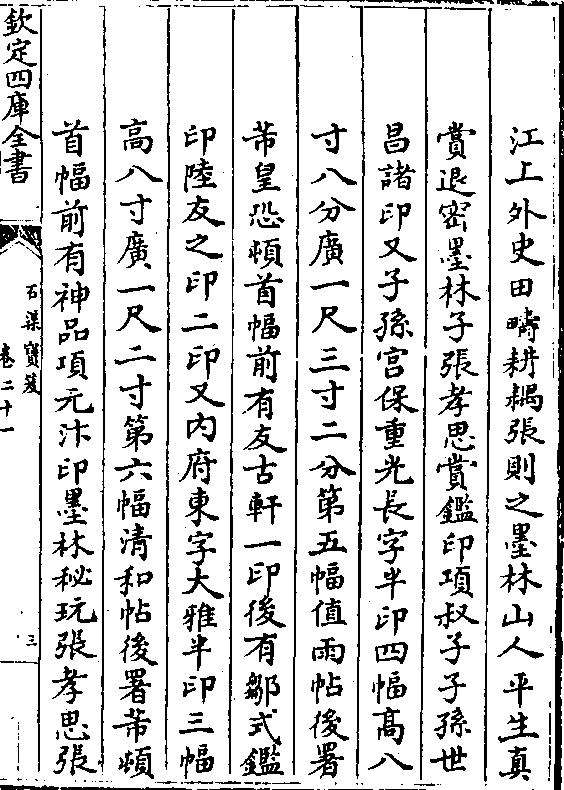 江上外史田疇耕耦張則之墨林山人平生真
賞退密墨林子張孝思賞鑑印項叔子子孫世
昌諸印又子孫宮保重光長字半印四幅高八
寸八分廣一尺三寸二分第五幅值雨帖後署
芾皇恐頓首幅前有友古軒一印後有鄒式鑑
印陸友之印二印又内府東字大雅半印三幅
高八寸廣一尺二寸第六幅清和帖後署芾頓
首幅前有神品項元汴印墨林秘玩張孝思張
欽定四庫全書
石渠寳笈
卷二十一
三